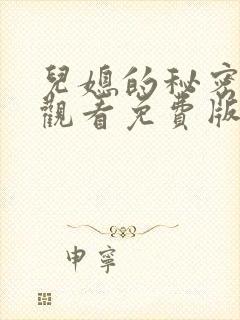 兒媳的秘密
觀看免費版
申寧